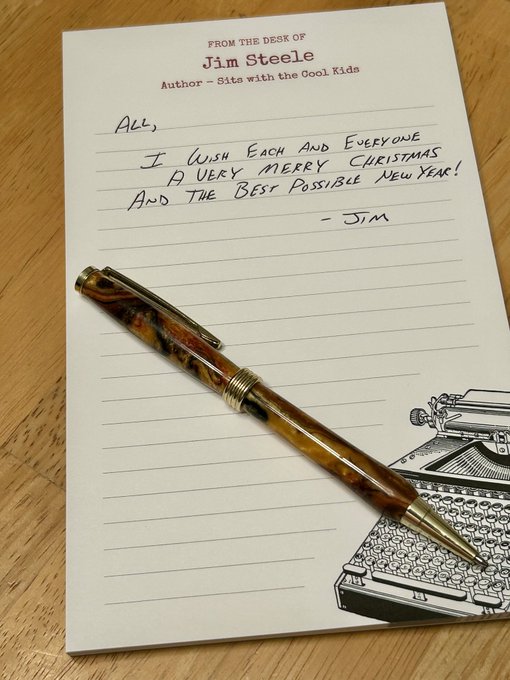 FROM THE DESK OF
Jim Steele
Author - Sits with the Cool Kids
ALL,
I WISH EACH AND EVERYONE
A VERY MERRY CHRISTMAS
AND THE BEST POSSIBLE NEW YEAR!
- JIM